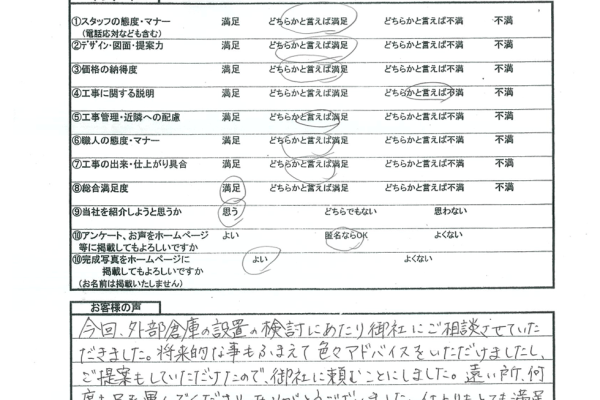 ①スタッフの態度・マナー 満足 どちらかと言えば満足 どちらかと言えば不満 不満
(電話応対なども含む)
②デザイン・図面・提案力 満足 どちらかと言えば満足 どちらかと言えば不満 不満
③価格の納得度 満足 どちらかと言えば満足 どちらかと言えば不満 不満
④工事に関する説明 満足 どちらかと言えば満足 どちらかと言えば不満 不満
⑤工事管理・近隣への配慮 満足 どちらかと言えば満足 どちらかと言えば不満 不満
⑥職人の態度・マナー 満足 どちらかと言えば満足 どちらかと言えば不満 不満
⑦工事の出来・仕上がり具合 満足 どちらかと言えば満足 どちらかと言えば不満 不満
⑧総合満足度 満足 どちらかと言えば満足 どちらかと言えば不満 不満
⑨当社を紹介しようと思うか 思う どちらでもない 思わない
⑩アンケート、お声をホームページ よい 匿名ならOK よくない
等に掲載してもよろしいですか
⑩完成写真をホームページに よい よくない
掲載してもよろしいですか
(お名前は掲載いたしません)
お客様の声
今回、外部倉庫の設置の検討にあたり御社にご相談させていた
だきました。将来的な事もふまえて色々アドバイスをいただけましたし、
ご提案もしていただけたので、御社に頼むことにしました。遠い所、何